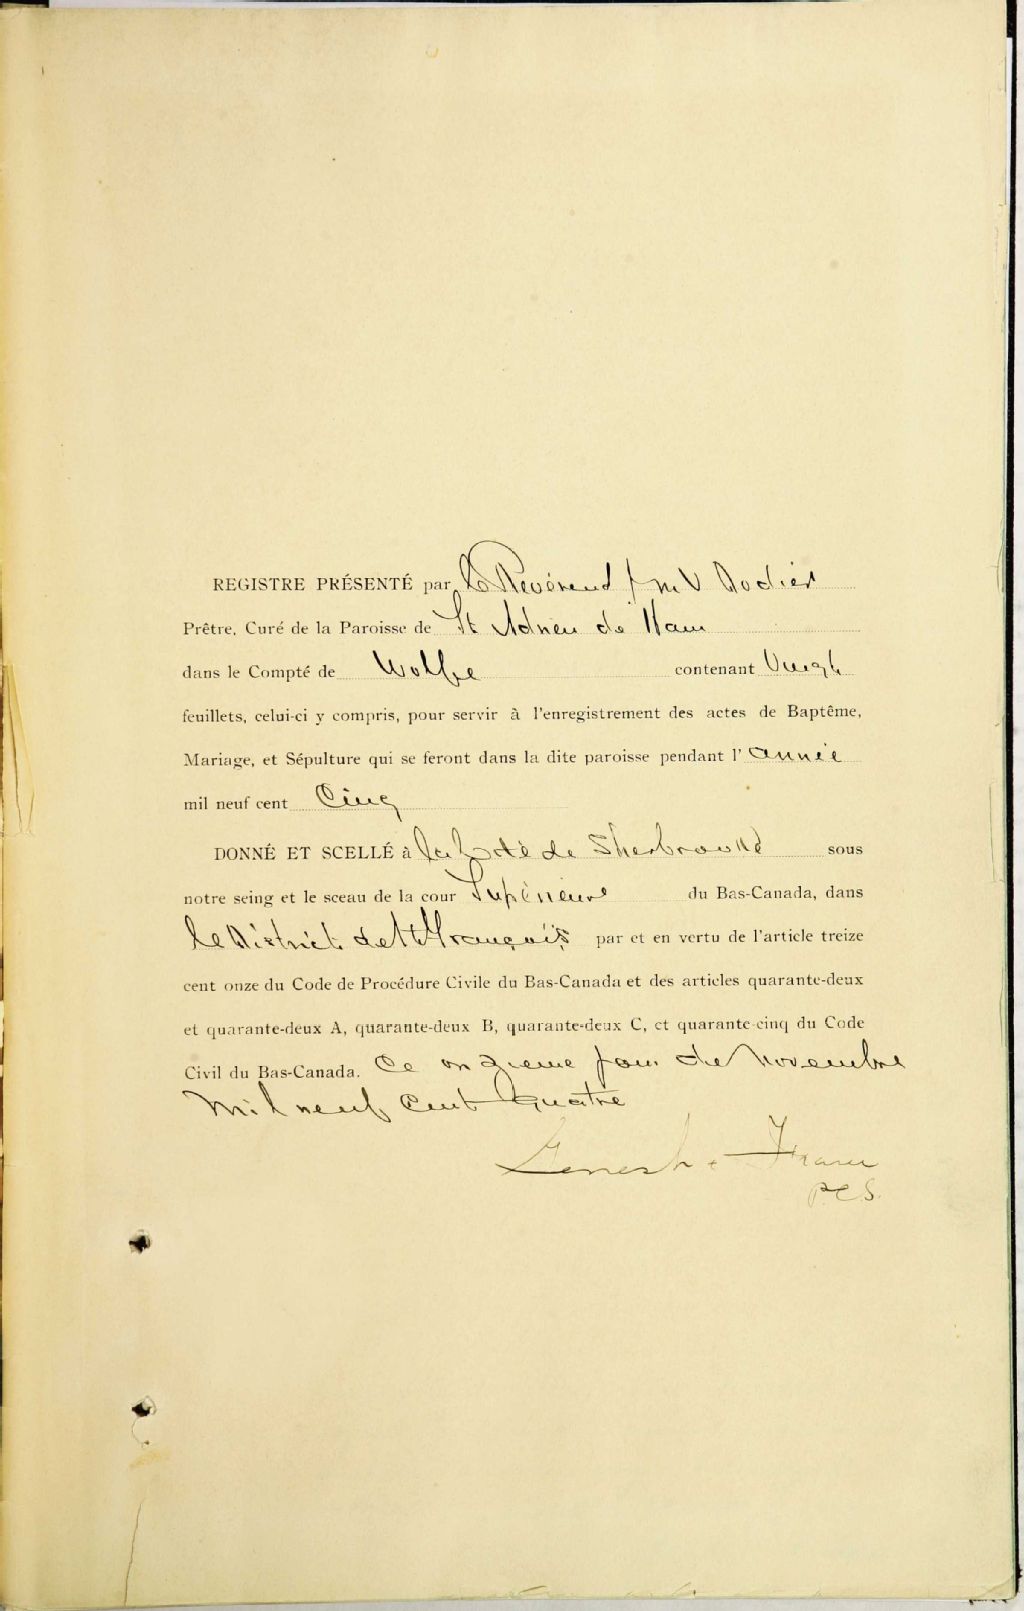 REGISTRE PRÉSENTÉ par Le Révérend J M V Rodier
Prêtre, Curé de la Paroisse de St Adrien de Ham
dans le Compté de Wolfe contenant Vingt
feuillets, celui-ci y compris, pour servir à l'enregistrement des actes de Baptême,
Mariage, et Sépulture qui se feront dans la dite paroisse pendant l' année
mil neuf cent Cinq
DONNÉ ET SCELLÉ à la Cité de Sherbrooke sous
notre seing et le sceau de la cour Supérieure du Bas-Canada, dans
le District de St François par et en vertu de l'article treize
cent onze du Code de Procédure Civile du Bas-Canada et des articles quarante-deux
et quarante-deux A, quarante-deux B, quarante-deux C, et quarante-cinq du Code
Civil du Bas-Canada. Ce onzieme jour de Novembre
Mil neuf Cent Quatre
P.C.S.